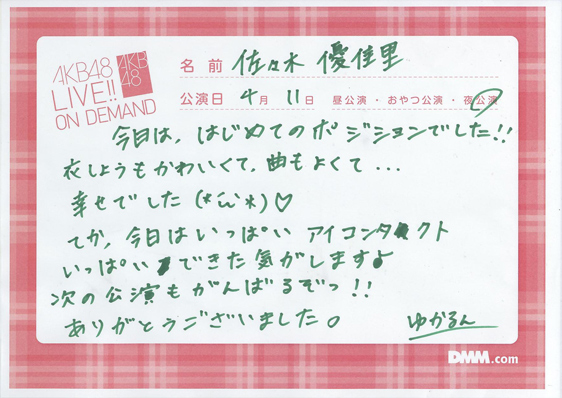 AKB48
LIVE!!
ON DEMAND
AKB
48
名前 佐々木 優佳里
公演日 4月 11日 昼公演・おやつ公演・夜公演
今日は、はじめてのポジションでした!!
衣しょうもかわいくて、曲もよくて...
幸せでした(*´ω`*)♡
てか、今日はいっぱいアイコンタクト
いっぱいできた気がします♪
次の公演もがんばるぞっ!!
ありがとうございました。 ゆかるん
DMM.com